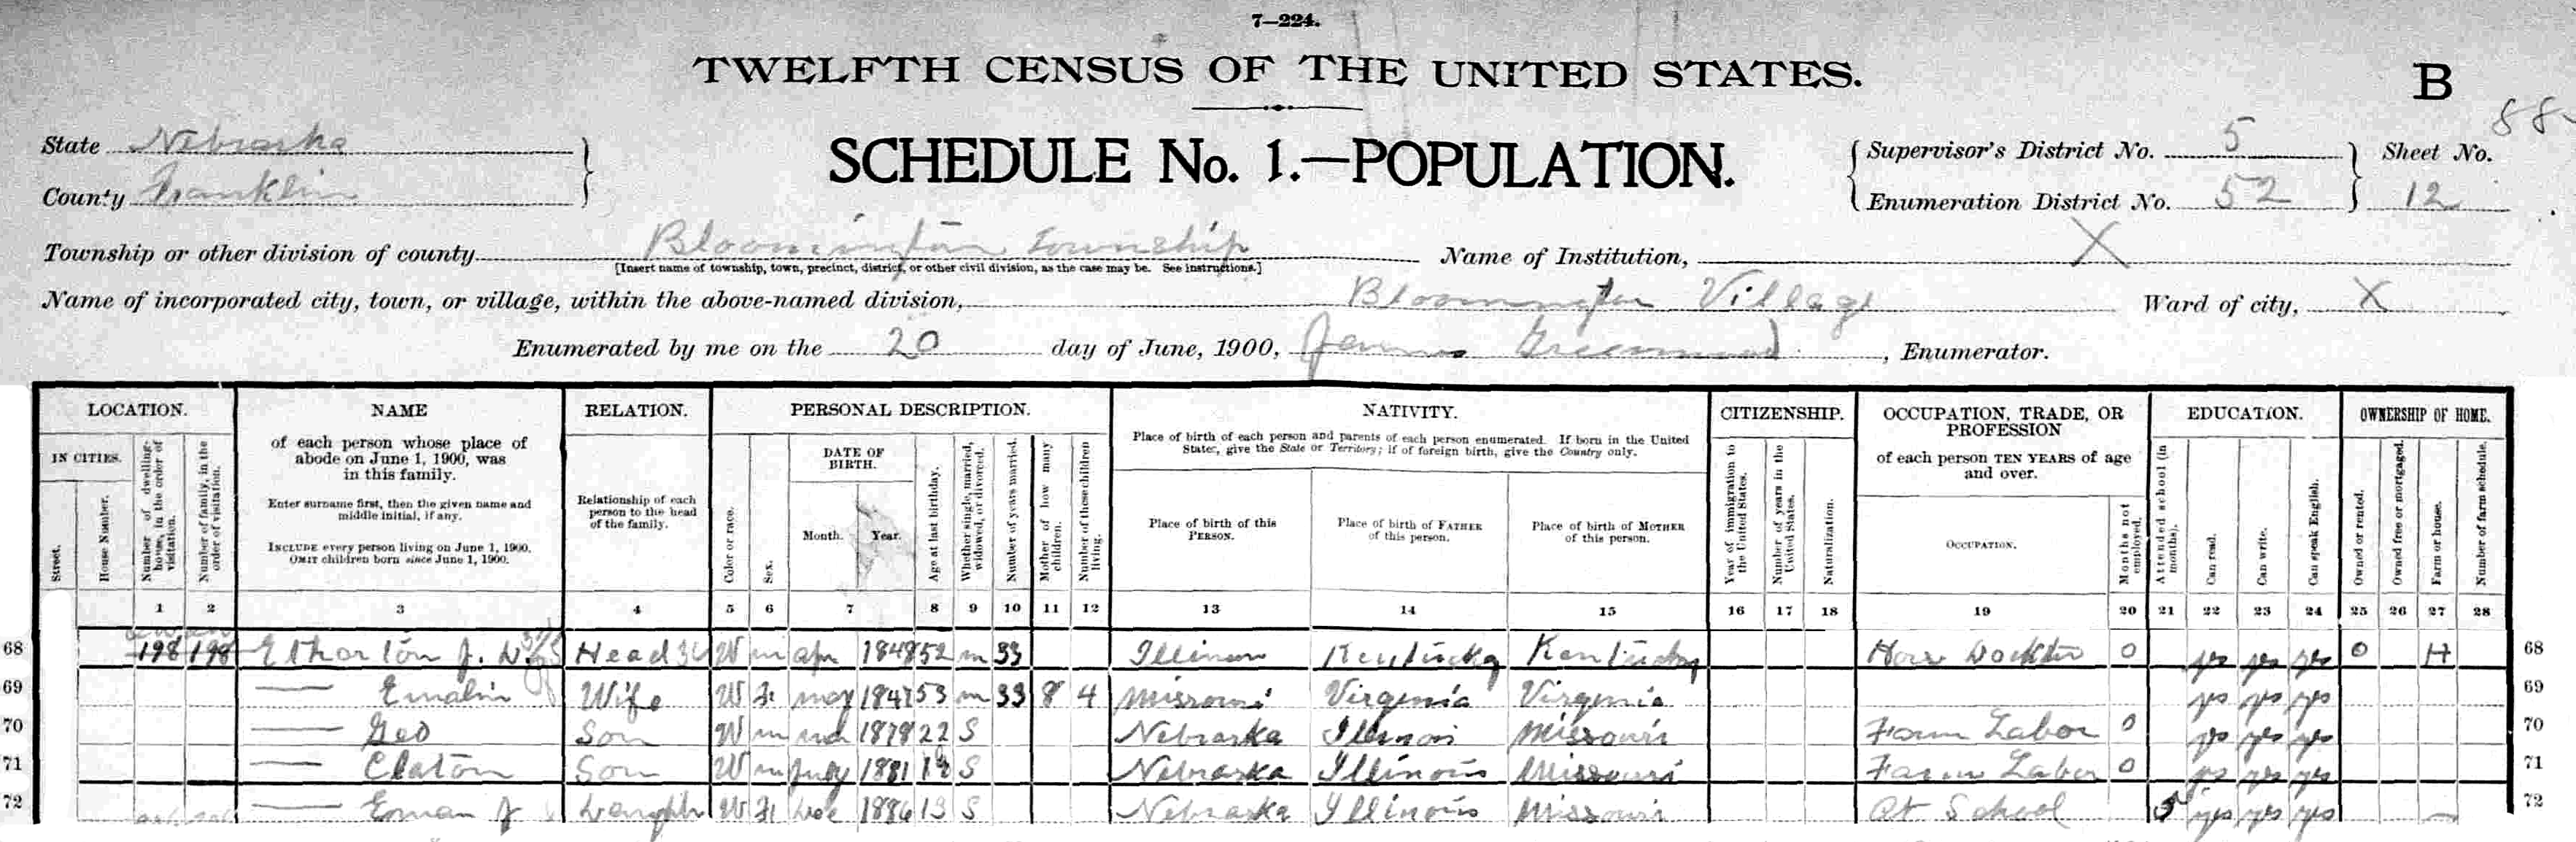 7—224.
TWELFTH CENSUS OF THE UNITED STATES.
B
88
State Nebraska
County Franklin
SCHEDULE No. 1.—POPULATION.
Supervisor's District No. 5
Enumeration District No. 52
Sheet No. 12
Township or other division of county Bloomington Township
[Insert name of township, town, precinct, district, or other civil division, as the case may be. See instructions.]
Name of Institution, X
Name of incorporated city, town, or village, within the above-named division, Bloomington Village
Ward of city, X
Enumerated by me on the 20 day of June, 1900, James Greenwood, Enumerator.
LOCATION. NAME RELATION. PERSONAL DESCRIPTION. NATIVITY. CITIZENSHIP. OCCUPATION, TRADE, OR PROFESSION EDUCATION. OWNERSHIP OF HOME.
IN CITIES.
Street.
House Number.
Number of dwelling-house, in the order of visitation.
Number of family, in the order of visitation.
of each person whose place of abode on June 1, 1900, was in this family.
Enter surname first, then the given name and middle initial, if any.
INCLUDE every person living on June 1, 1900.
OMIT children born since June 1, 1900.
Relationship of each person to the head of the family.
Color or race.
Sex.
DATE OF BIRTH.
Month. Year.
Age at last birthday.
Whether single, married, widowed, or divorced.
Number of years married.
Mother of how many children.
Number of these children living.
Place of birth of each person and parents of each person enumerated. If born in the United States, give the State or Territory; if of foreign birth, give the Country only.
Place of birth of this PERSON.
Place of birth of FATHER of this person.
Place of birth of MOTHER of this person.
Year of immigration to the United States.
Number of years in the United States.
Naturalization.
of each person TEN YEARS of age and over.
OCCUPATION.
Months not employed.
Attended school (in months).
Can read.
Can write.
Can speak English.
Owned or rented.
Owned free or mortgaged.
Farm or house.
Number of farm schedule.
1 2 3 4 5 6 7 8 9 10 11 12 13 14 15 16 17 18 19 20 21 22 23 24 25 26 27 28
68 198 198 Etharton J. W. Head W m apr 1848 52 m 33 Illinois Kentucky Kentucky Hors Docktor 0 yes yes yes O H 68
69 — Emalin Wife W F may 1847 53 m 33 8 4 Missouri Virginia Virginia yes yes yes 69
70 — Geo Son W m 1878 22 S Nebraska Illinois Missouri Farm Labor 0 yes yes yes 70
71 — Claton Son W m July 1881 18 S Nebraska Illinois Missouri Farm Labor 0 yes yes yes 71
72 — J Daughter W F Dec 1886 13 S Nebraska Illinois Missouri At School 5 yes yes yes 72